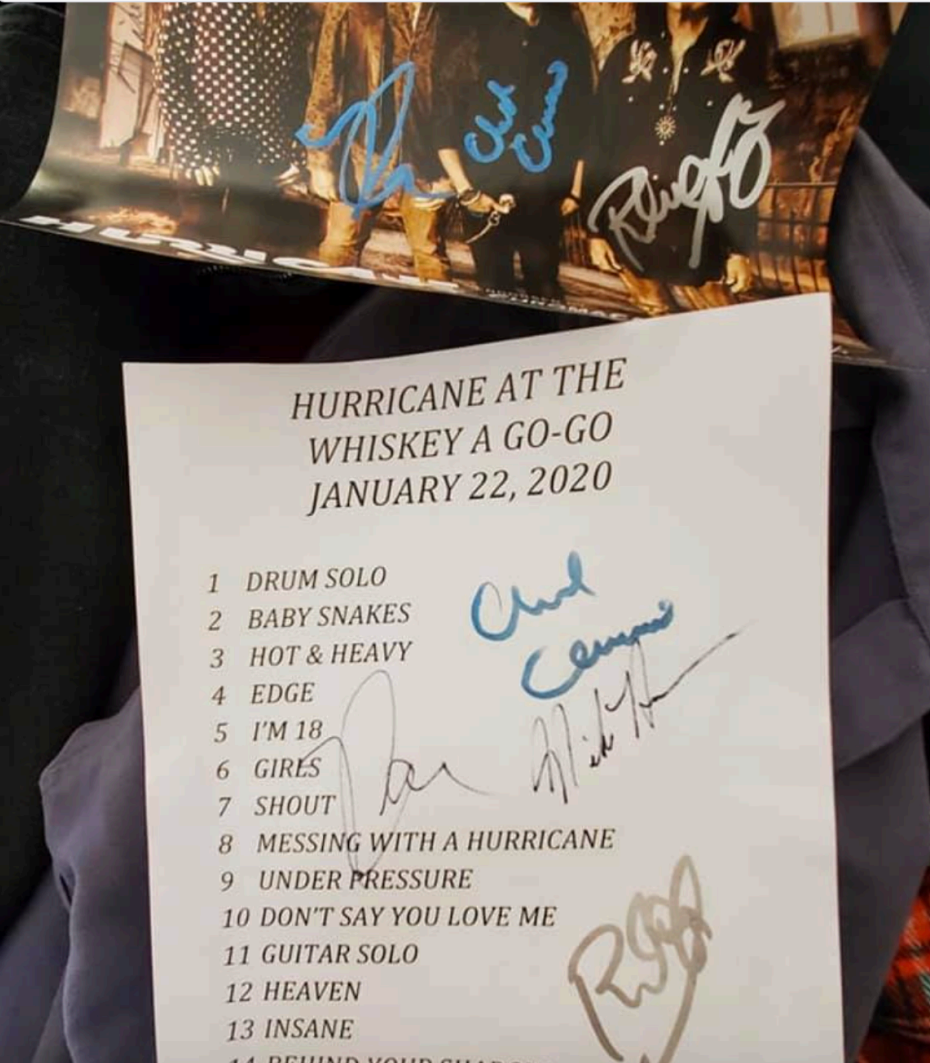 HURRICANE
HURRICANE AT THE
WHISKEY A GO-GO
JANUARY 22, 2020
1 DRUM SOLO
2 BABY SNAKES
3 HOT & HEAVY
4 EDGE
5 I'M 18
6 GIRLS
7 SHOUT
8 MESSING WITH A HURRICANE
9 UNDER PRESSURE
10 DON'T SAY YOU LOVE ME
11 GUITAR SOLO
12 HEAVEN
13 INSANE
14 BEHIND YOUR